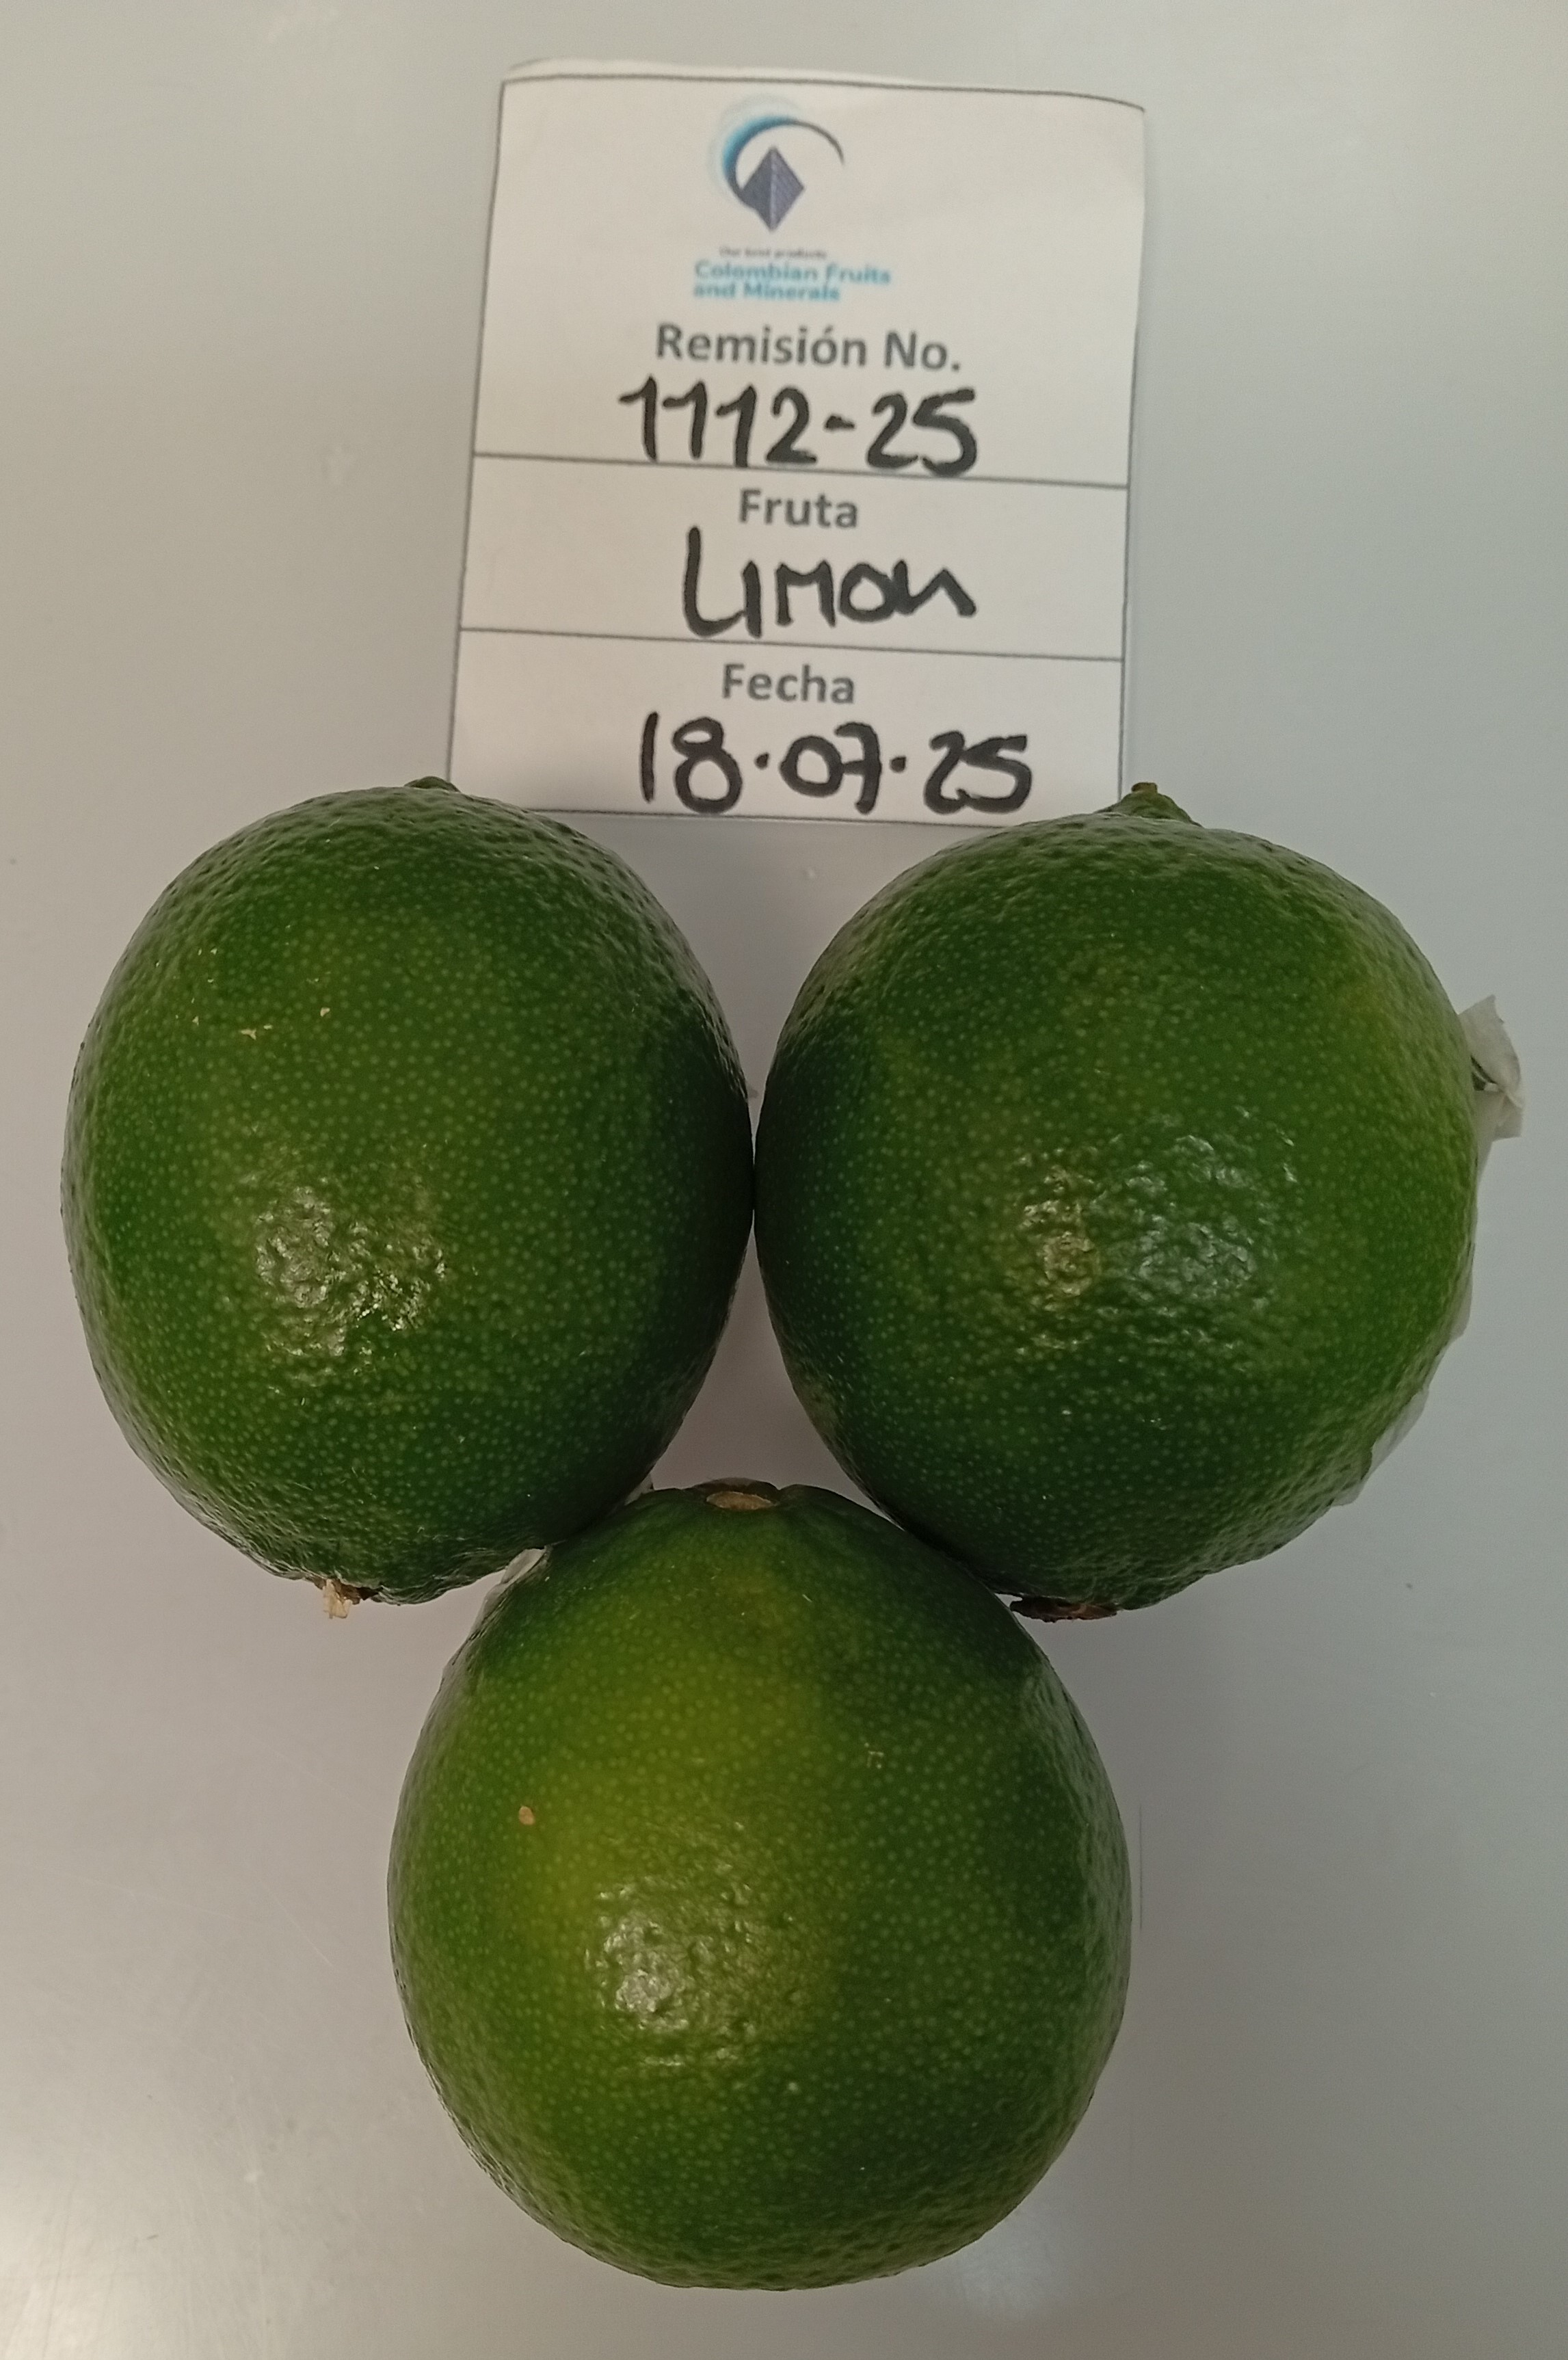 Our best products
Colombian Fruits
and Minerals
Remisión No.
1112-25
Fruta
Limon
Fecha
18.07.25